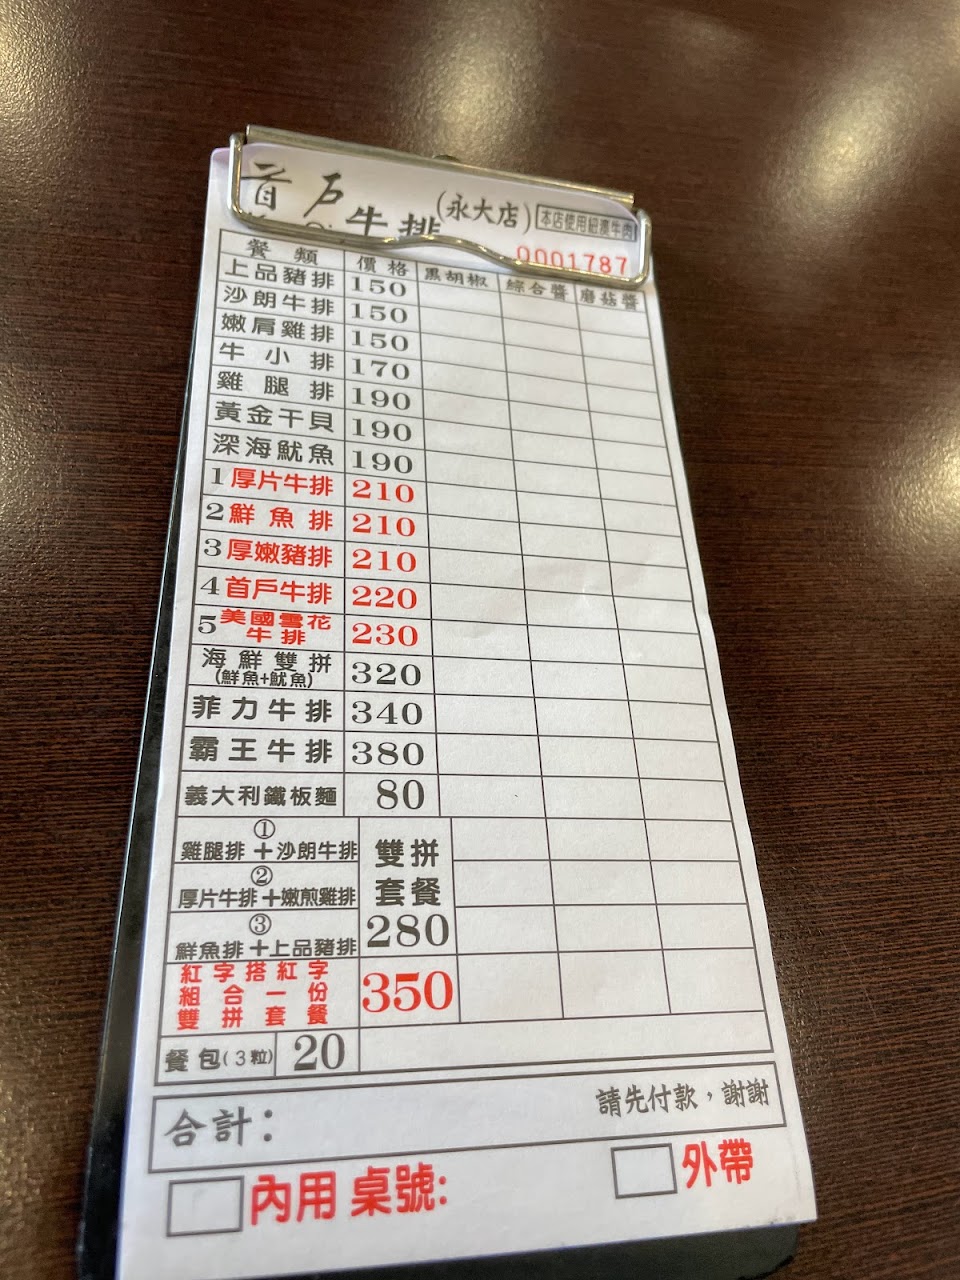 首戶牛排(永大店) 本店使用紐澳牛肉
0001787
餐類 價格 黑胡椒 綜合醬 蘑菇醬
上品豬排 150
沙朗牛排 150
嫩肩雞排 150
牛小排 170
雞腿排 190
黃金干貝 190
深海魷魚 190
1厚片牛排 210
2鮮魚排 210
3厚嫩豬排 210
4首戶牛排 220
5美國雪花牛排 230
海鮮雙拼(鮮魚+魷魚) 320
菲力牛排 340
霸王牛排 380
義大利鐵板麵 80
①
雞腿排+沙朗牛排
②
厚片牛排+嫩煎雞排
③
鮮魚排+上品豬排
雙拼
套餐
280
紅字搭紅字
組合一份
雙拼套餐
350
餐包(3粒) 20
合計: 請先付款,謝謝
內用 桌號: 外帶